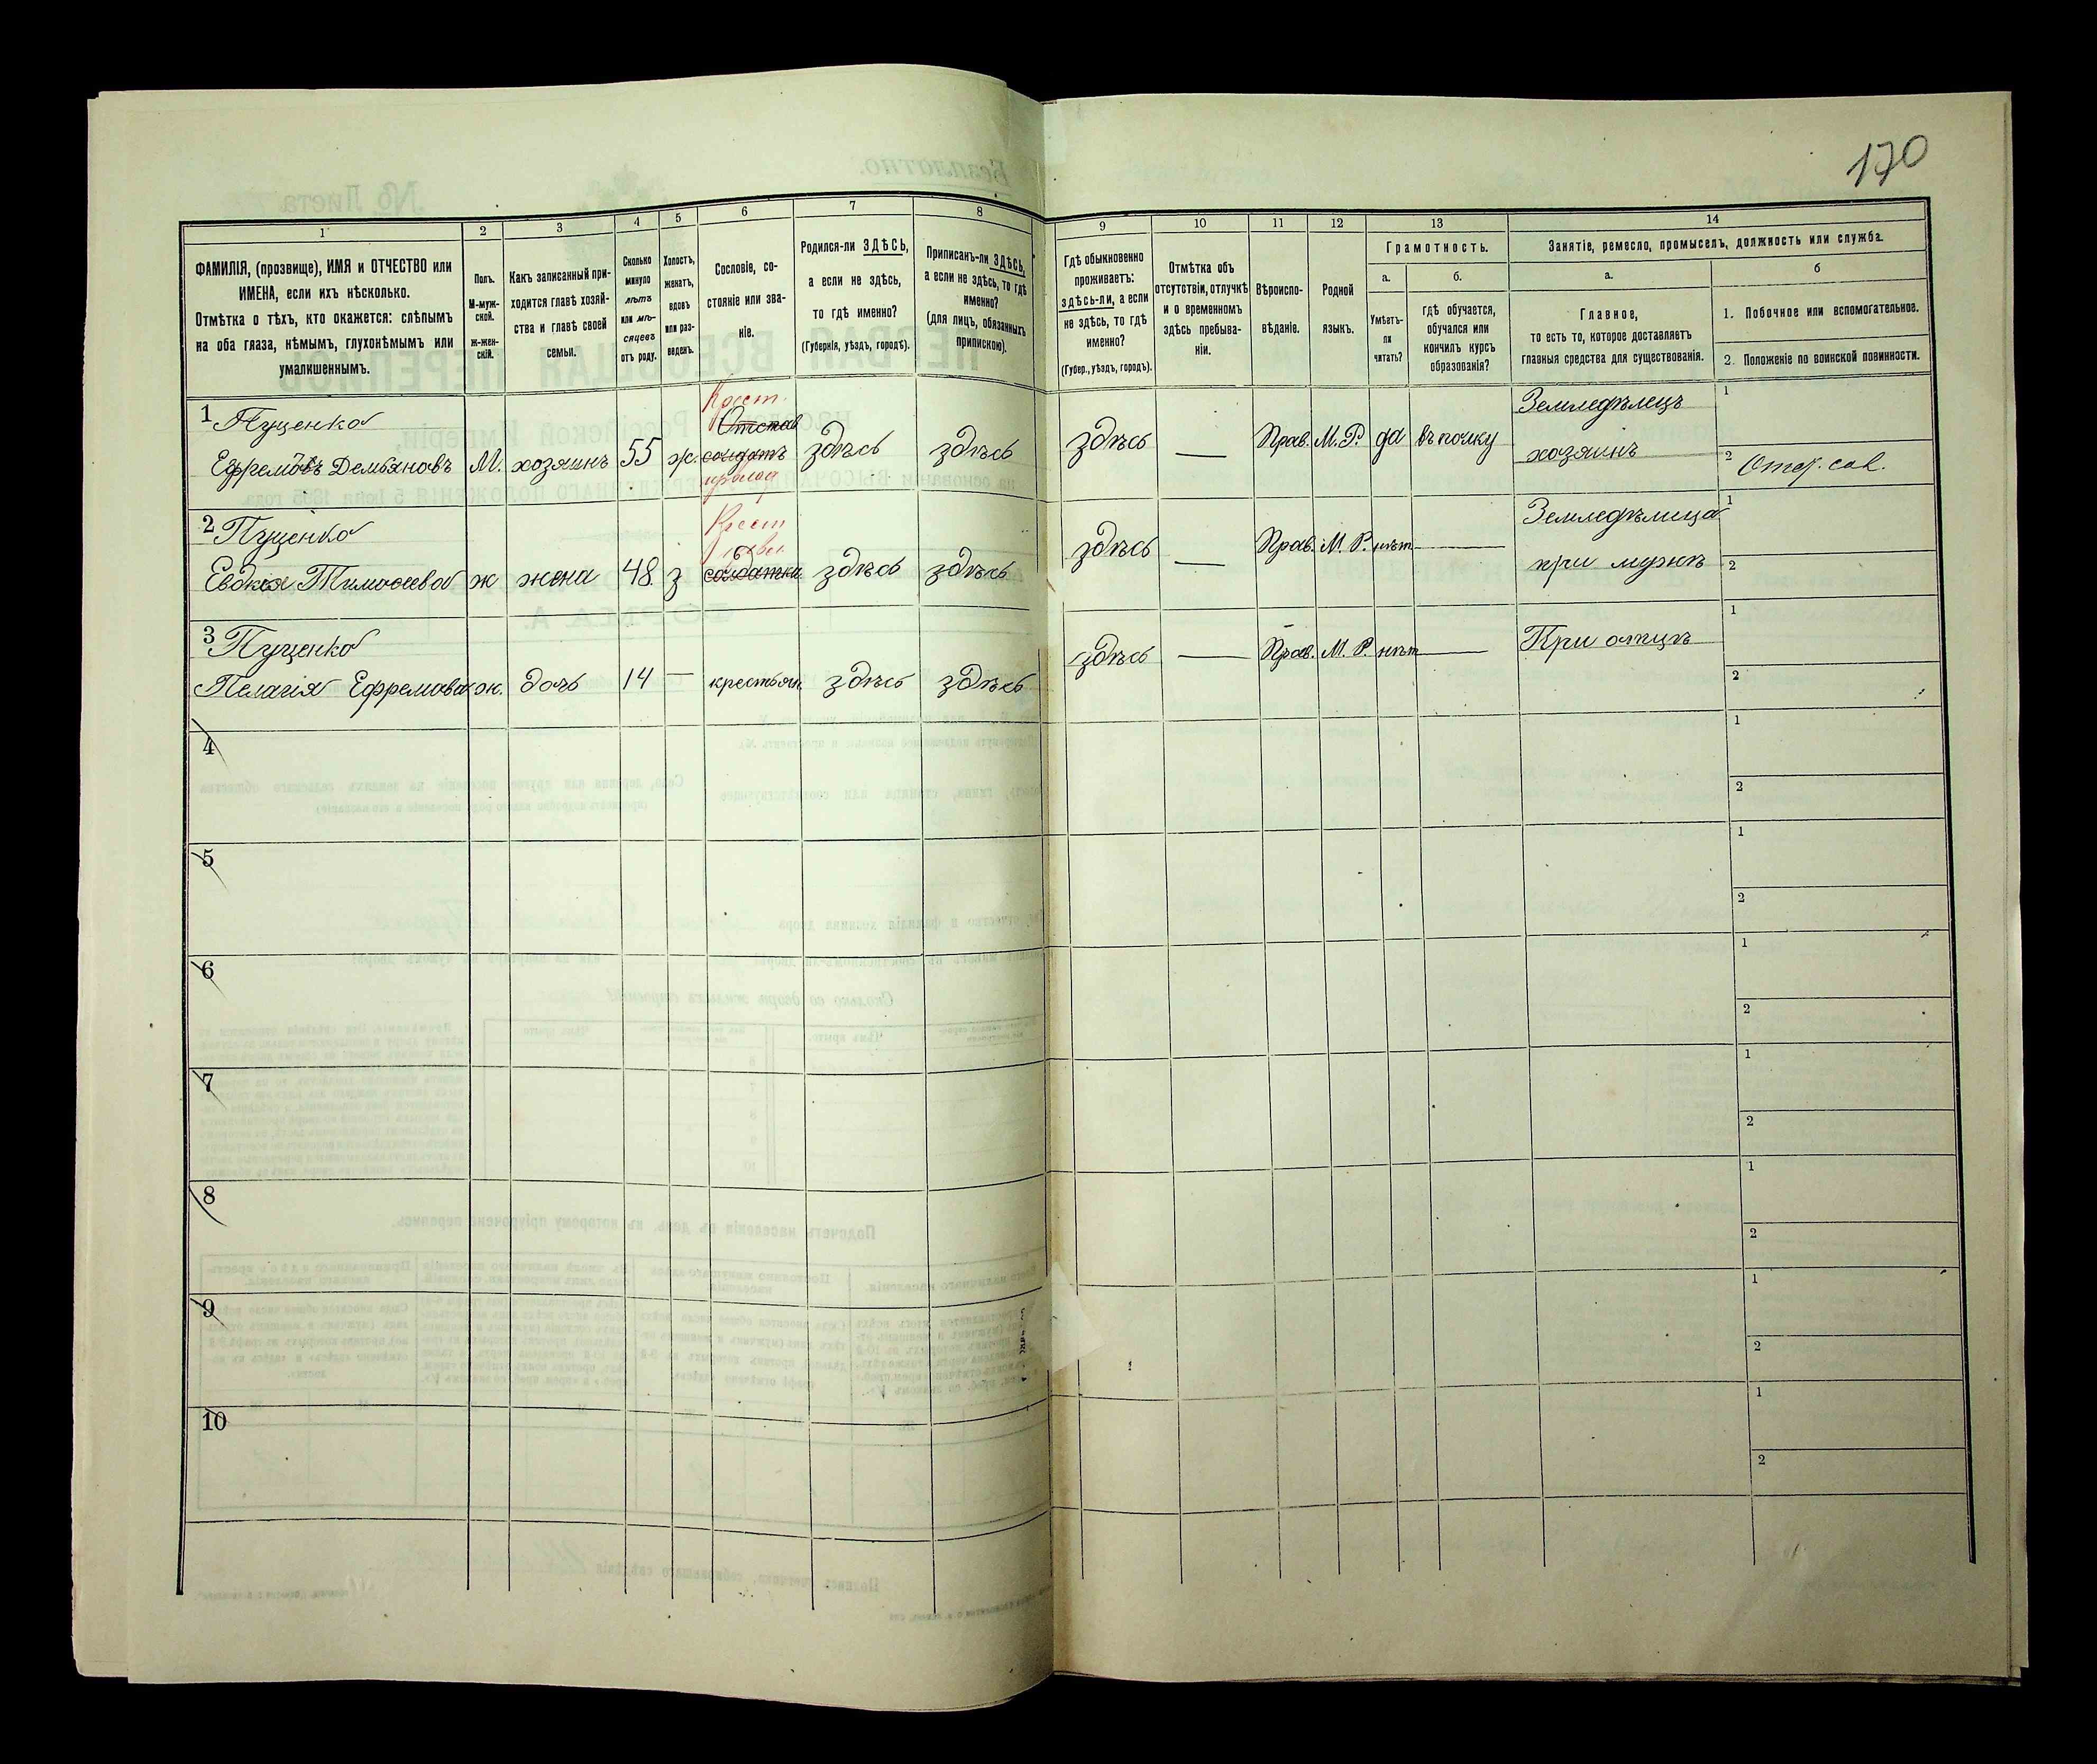 170
1
2
3
4
5
6
7
8
9
10
11
12
13
14
ФАМИЛІЯ, (прозвище), ИМЯ и ОТЧЕСТВО или
ИМЕНА, если ихъ нѣсколько.
Отмѣтка о тѣхъ, кто окажется: слѣпымъ
на оба глаза, нѣмымъ, глухонѣмымъ или
умалишеннымъ.
Полъ.
М-муж-
ской.
Ж-жен-
скій.
Какъ записанный при-
ходится главѣ хозяй-
ства и главѣ своей
семьи.
Сколько
минуло
лѣтъ
или мѣ-
сяцевъ
отъ роду.
Холостъ,
женатъ,
вдовъ
или раз-
веденъ.
Сословіе, со-
стояніе или зва-
ніе.
Родился-ли ЗДѢСЬ,
а если не здѣсь,
то гдѣ именно?
(Губернія, уѣздъ, городъ).
Приписанъ-ли ЗДѢСЬ,
а если не здѣсь, то гдѣ
именно?
(для лицъ, обязанныхъ
припискою).
Гдѣ обыкновенно
проживаетъ:
здѣсь-ли, а если
не здѣсь, то гдѣ
именно?
(Губер., уѣздъ, городъ).
Отмѣтка объ
отсутствіи, отлучкѣ
и о временномъ
здѣсь пребыва-
ніи.
Вѣроиспо-
вѣданіе.
Родной
языкъ.
Грамотность.
а.
Умѣетъ-
ли
читать?
б.
гдѣ обучается,
обучался или
кончилъ курсъ
образованія?
Занятіе, ремесло, промыселъ, должность или служба.
а.
Главное,
то есть то, которое доставляетъ
главныя средства для существованія.
б
1. Побочное или вспомогательное.
2. Положеніе по воинской повинности.
1 Пуценко
Ефремовъ Демьяновъ
М.
хозяинъ
55
ж.
Крест.
Отстав
солдатъ
здѣсь
здѣсь
здѣсь
—
Прав.
М. Р.
да
въ полку
Земледѣлецъ
хозяинъ
1
2
2 Пуценко
Евдкія Тимофеева
ж
жена
48
з
Крест
солдатка
здѣсь
здѣсь
здѣсь
—
Прав.
М. Р.
нѣт
—
Земледѣлица
при мужѣ
1
2
3 Пуценко
Пелагія Ефремова
ж.
дочь
14
—
крестьян
здѣсь
здѣсь
здѣсь
—
Прав.
М. Р.
нѣт
—
При отцѣ
1
2
4
1
2
5
1
2
6
1
2
7
1
2
8
1
2
9
1
2
10
1
2